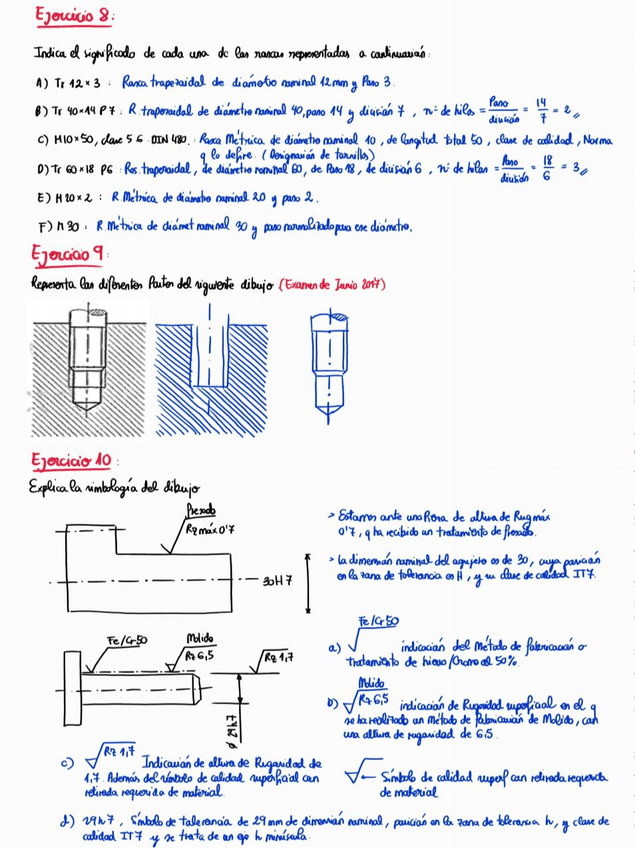 Ejercicio 8:
Indica el significado de cada una de las roscas representadas a continuación:
A) Tr 12 × 3 : Rosca trapezoidal de diámetro nominal 12mm y Paso 3.
B) Tr 40×14 P7 : R. trapezoidal de diámetro nominal 40, paso 14 y división 7, nº de hilos = Paso / división = 14 / 7 = 2
C) M10×50, clase 5.6 DIN 480 : Rosca Métrica de diámetro nominal 10, de longitud total 50, clase de calidad, Norma
q lo define. (Designación de tornillos)
D) Tr 60×18 P6 : Ros. trapezoidal, de diámetro nominal 60, de Paso 18, de división 6, nº de hilos = Paso / división = 18 / 6 = 3
E) M20×2 : R. Métrica de diámetro nominal 20 y paso 2.
F) M30 : R. Métrica de diámet nominal 30 y paso normalizado para ese diámetro.
Ejercicio 9:
Representa las diferentes Partes del siguiente dibujo (Examen de Junio 2017)
Ejercicio 10:
Explica la simbología del dibujo
Presado
Rz máx 0'7
30H7
> Estamos ante una Rosa de altura de Rug máx
0'7, q ha recibido un tratamiento de Presado.
> la dimensión nominal del agujero es de 30, cuya posición
en la zona de tolerancia es H, y su clase de calidad IT7.
Fe/Cr50
Molido
Rz 6,5
Rz 1,7
ø 29h7
Fe/Cr 50
a) indicación del Método de fabricación o
tratamiento de hierro/Cromo al 50%.
Molido
Rz 6,5
b) indicación de Rugosidad superficial en el q
se ha realizado un Método de fabricación de Molido, con
una altura de rugosidad de 6.5.
c) Rz 1,7 Indicación de altura de Rugosidad de
1,7. Además del símbolo de calidad superficial con
retirada requerida de material.
← Símbolo de calidad superf con retirada requerida
de material
d) 29h7, Símbolo de tolerancia de 29 mm de dimensión nominal, posición en la zona de tolerancia h, y clase de
calidad IT7 y se trata de un eje h minúscula.